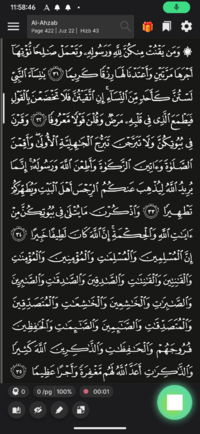 11:58:46
Al-Ahzab
Page 422 | Juz 22 | Hizb 43
۞ وَمَن يَقْنُتْ مِنكُنَّ لِلَّهِ وَرَسُولِهِۦ وَتَعْمَلْ صَٰلِحًا نُّؤْتِهَآ
أَجْرَهَا مَرَّتَيْنِ وَأَعْتَدْنَا لَهَا رِزْقًا كَرِيمًا ٣١ يَٰنِسَآءَ ٱلنَّبِىِّ
لَسْتُنَّ كَأَحَدٍ مِّنَ ٱلنِّسَآءِ إِنِ ٱتَّقَيْتُنَّ فَلَا تَخْضَعْنَ بِٱلْقَوْلِ
فَيَطْمَعَ ٱلَّذِى فِى قَلْبِهِۦ مَرَضٌ وَقُلْنَ قَوْلًا مَّعْرُوفًا ٣٢ وَقَرْنَ
فِى بُيُوتِكُنَّ وَلَا تَبَرَّجْنَ تَبَرُّجَ ٱلْجَٰهِلِيَّةِ ٱلْأُولَىٰ وَأَقِمْنَ
ٱلصَّلَوٰةَ وَءَاتِينَ ٱلزَّكَوٰةَ وَأَطِعْنَ ٱللَّهَ وَرَسُولَهُۥٓ إِنَّمَا
يُرِيدُ ٱللَّهُ لِيُذْهِبَ عَنكُمُ ٱلرِّجْسَ أَهْلَ ٱلْبَيْتِ وَيُطَهِّرَكُمْ
تَطْهِيرًا ٣٣ وَٱذْكُرْنَ مَا يُتْلَىٰ فِى بُيُوتِكُنَّ مِنْ
ءَايَٰتِ ٱللَّهِ وَٱلْحِكْمَةِ إِنَّ ٱللَّهَ كَانَ لَطِيفًا خَبِيرًا ٣٤
إِنَّ ٱلْمُسْلِمِينَ وَٱلْمُسْلِمَٰتِ وَٱلْمُؤْمِنِينَ وَٱلْمُؤْمِنَٰتِ
وَٱلْقَٰنِتِينَ وَٱلْقَٰنِتَٰتِ وَٱلصَّٰدِقِينَ وَٱلصَّٰدِقَٰتِ وَٱلصَّٰبِرِينَ
وَٱلصَّٰبِرَٰتِ وَٱلْخَٰشِعِينَ وَٱلْخَٰشِعَٰتِ وَٱلْمُتَصَدِّقِينَ
وَٱلْمُتَصَدِّقَٰتِ وَٱلصَّٰٓئِمِينَ وَٱلصَّٰٓئِمَٰتِ وَٱلْحَٰفِظِينَ
فُرُوجَهُمْ وَٱلْحَٰفِظَٰتِ وَٱلذَّٰكِرِينَ ٱللَّهَ كَثِيرًا
وَٱلذَّٰكِرَٰتِ أَعَدَّ ٱللَّهُ لَهُم مَّغْفِرَةً وَأَجْرًا عَظِيمًا ٣٥
0 0 /pg 100% 00:01